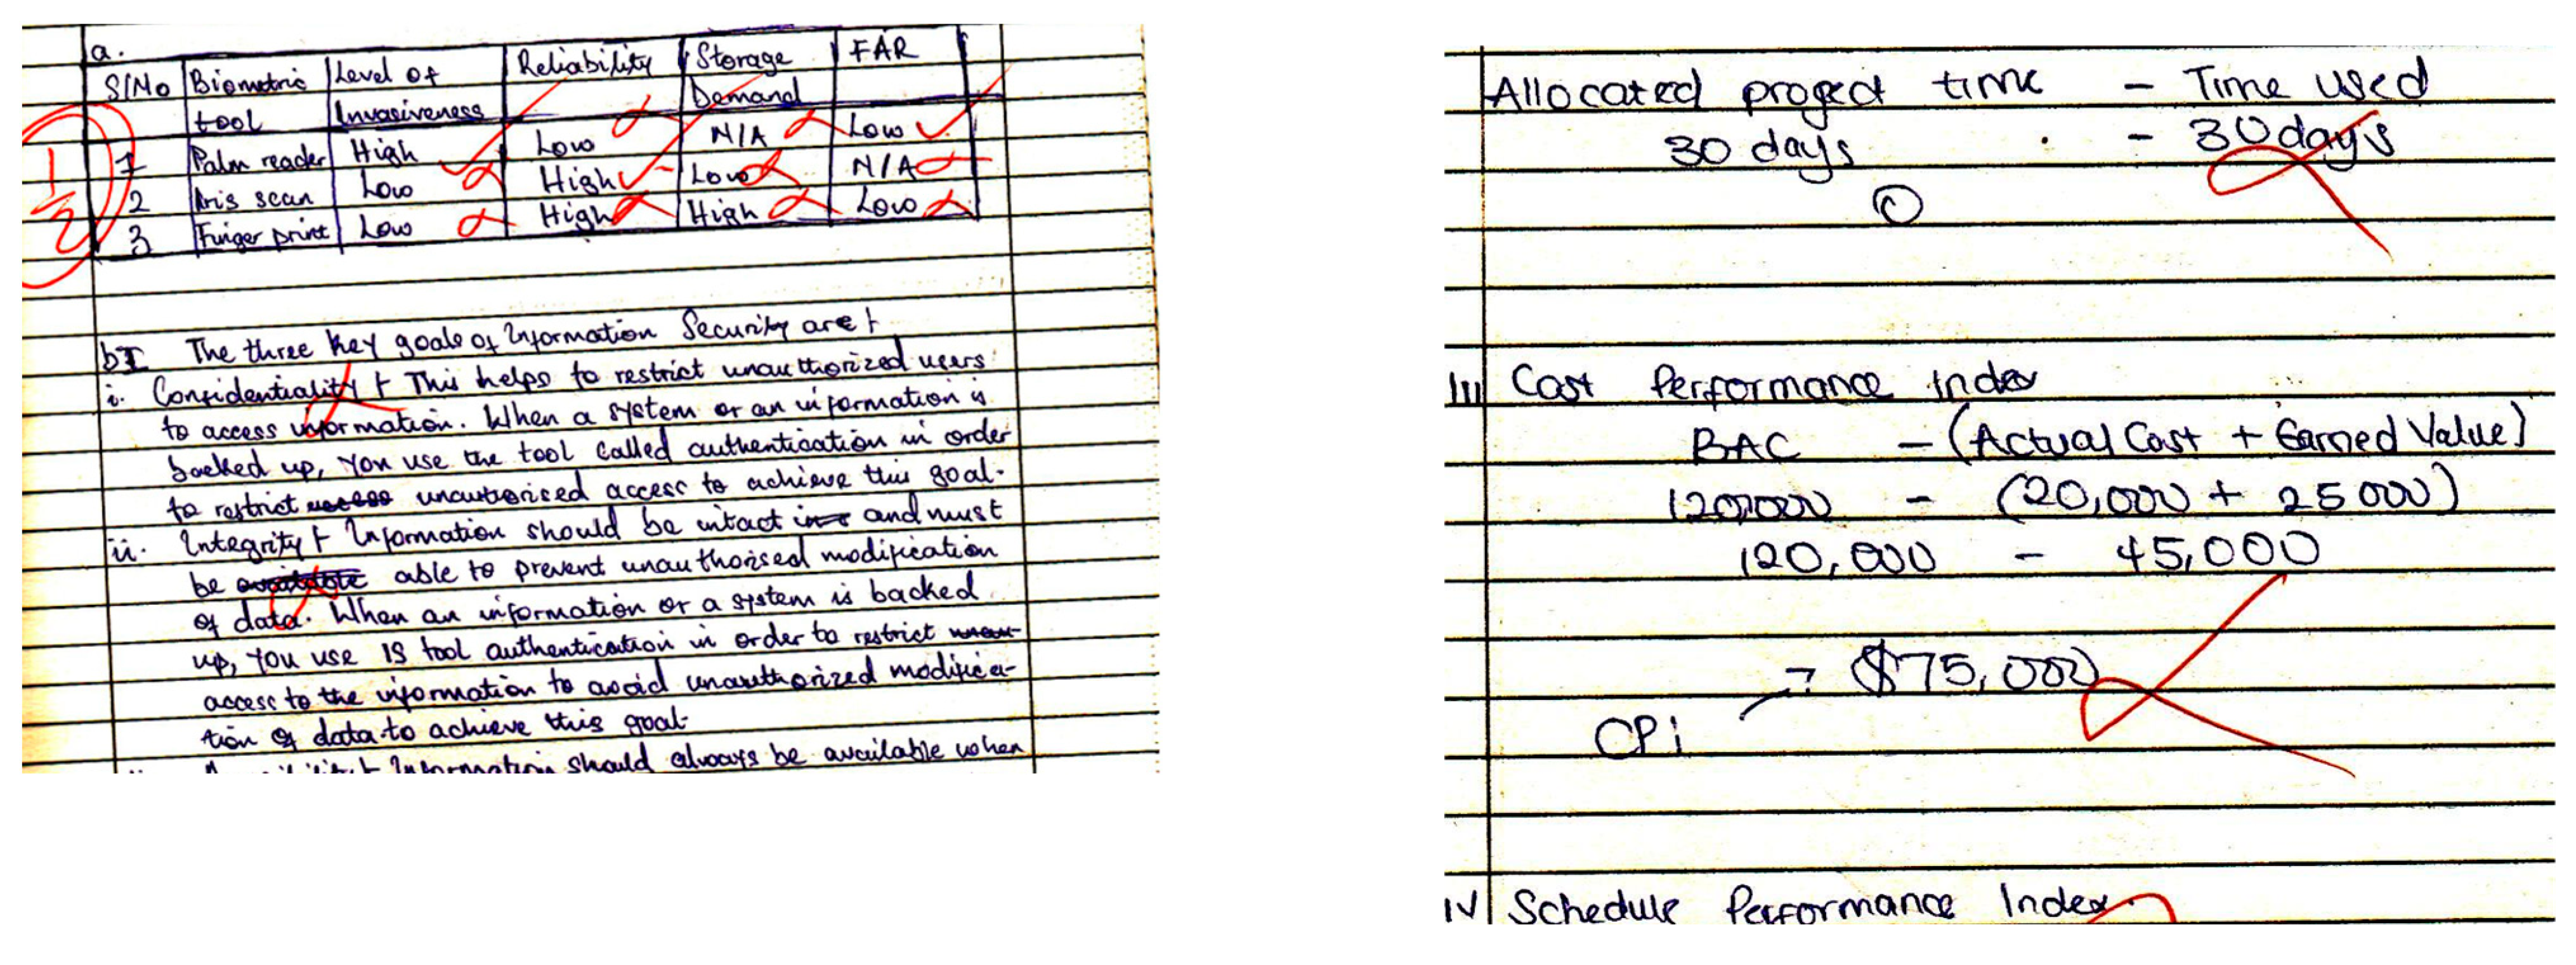 a.
S/No Biometric tool Level of Invasiveness Reliability Storage Demand FAR
1 Palm reader High Low N/A Low
2 Iris scan Low High Low N/A
3 Finger print Low High High Low
1/2
bI The three key goals of Information Security are:
i. Confidentiality : This helps to restrict unauthorized users
to access information. When a system or an information is
backed up, you use the tool called authentication in order
to restrict unauthorised access to achieve this goal.
ii. Integrity : Information should be intact and must
be able to prevent unauthorised modification
of data. When an information or a system is backed
up, you use IS tool authentication in order to restrict
access to the information to avoid unauthorized modifica-
tion of data to achieve this goal.
Information should always be available when
Allocated project time - Time used
30 days - 30 days
0
III Cost Performance Index
BAC - (Actual Cost + Earned Value)
120,000 - (20,000 + 25000)
120,000 - 45,000
$75,000
CPi
IV Schedule Performance Index